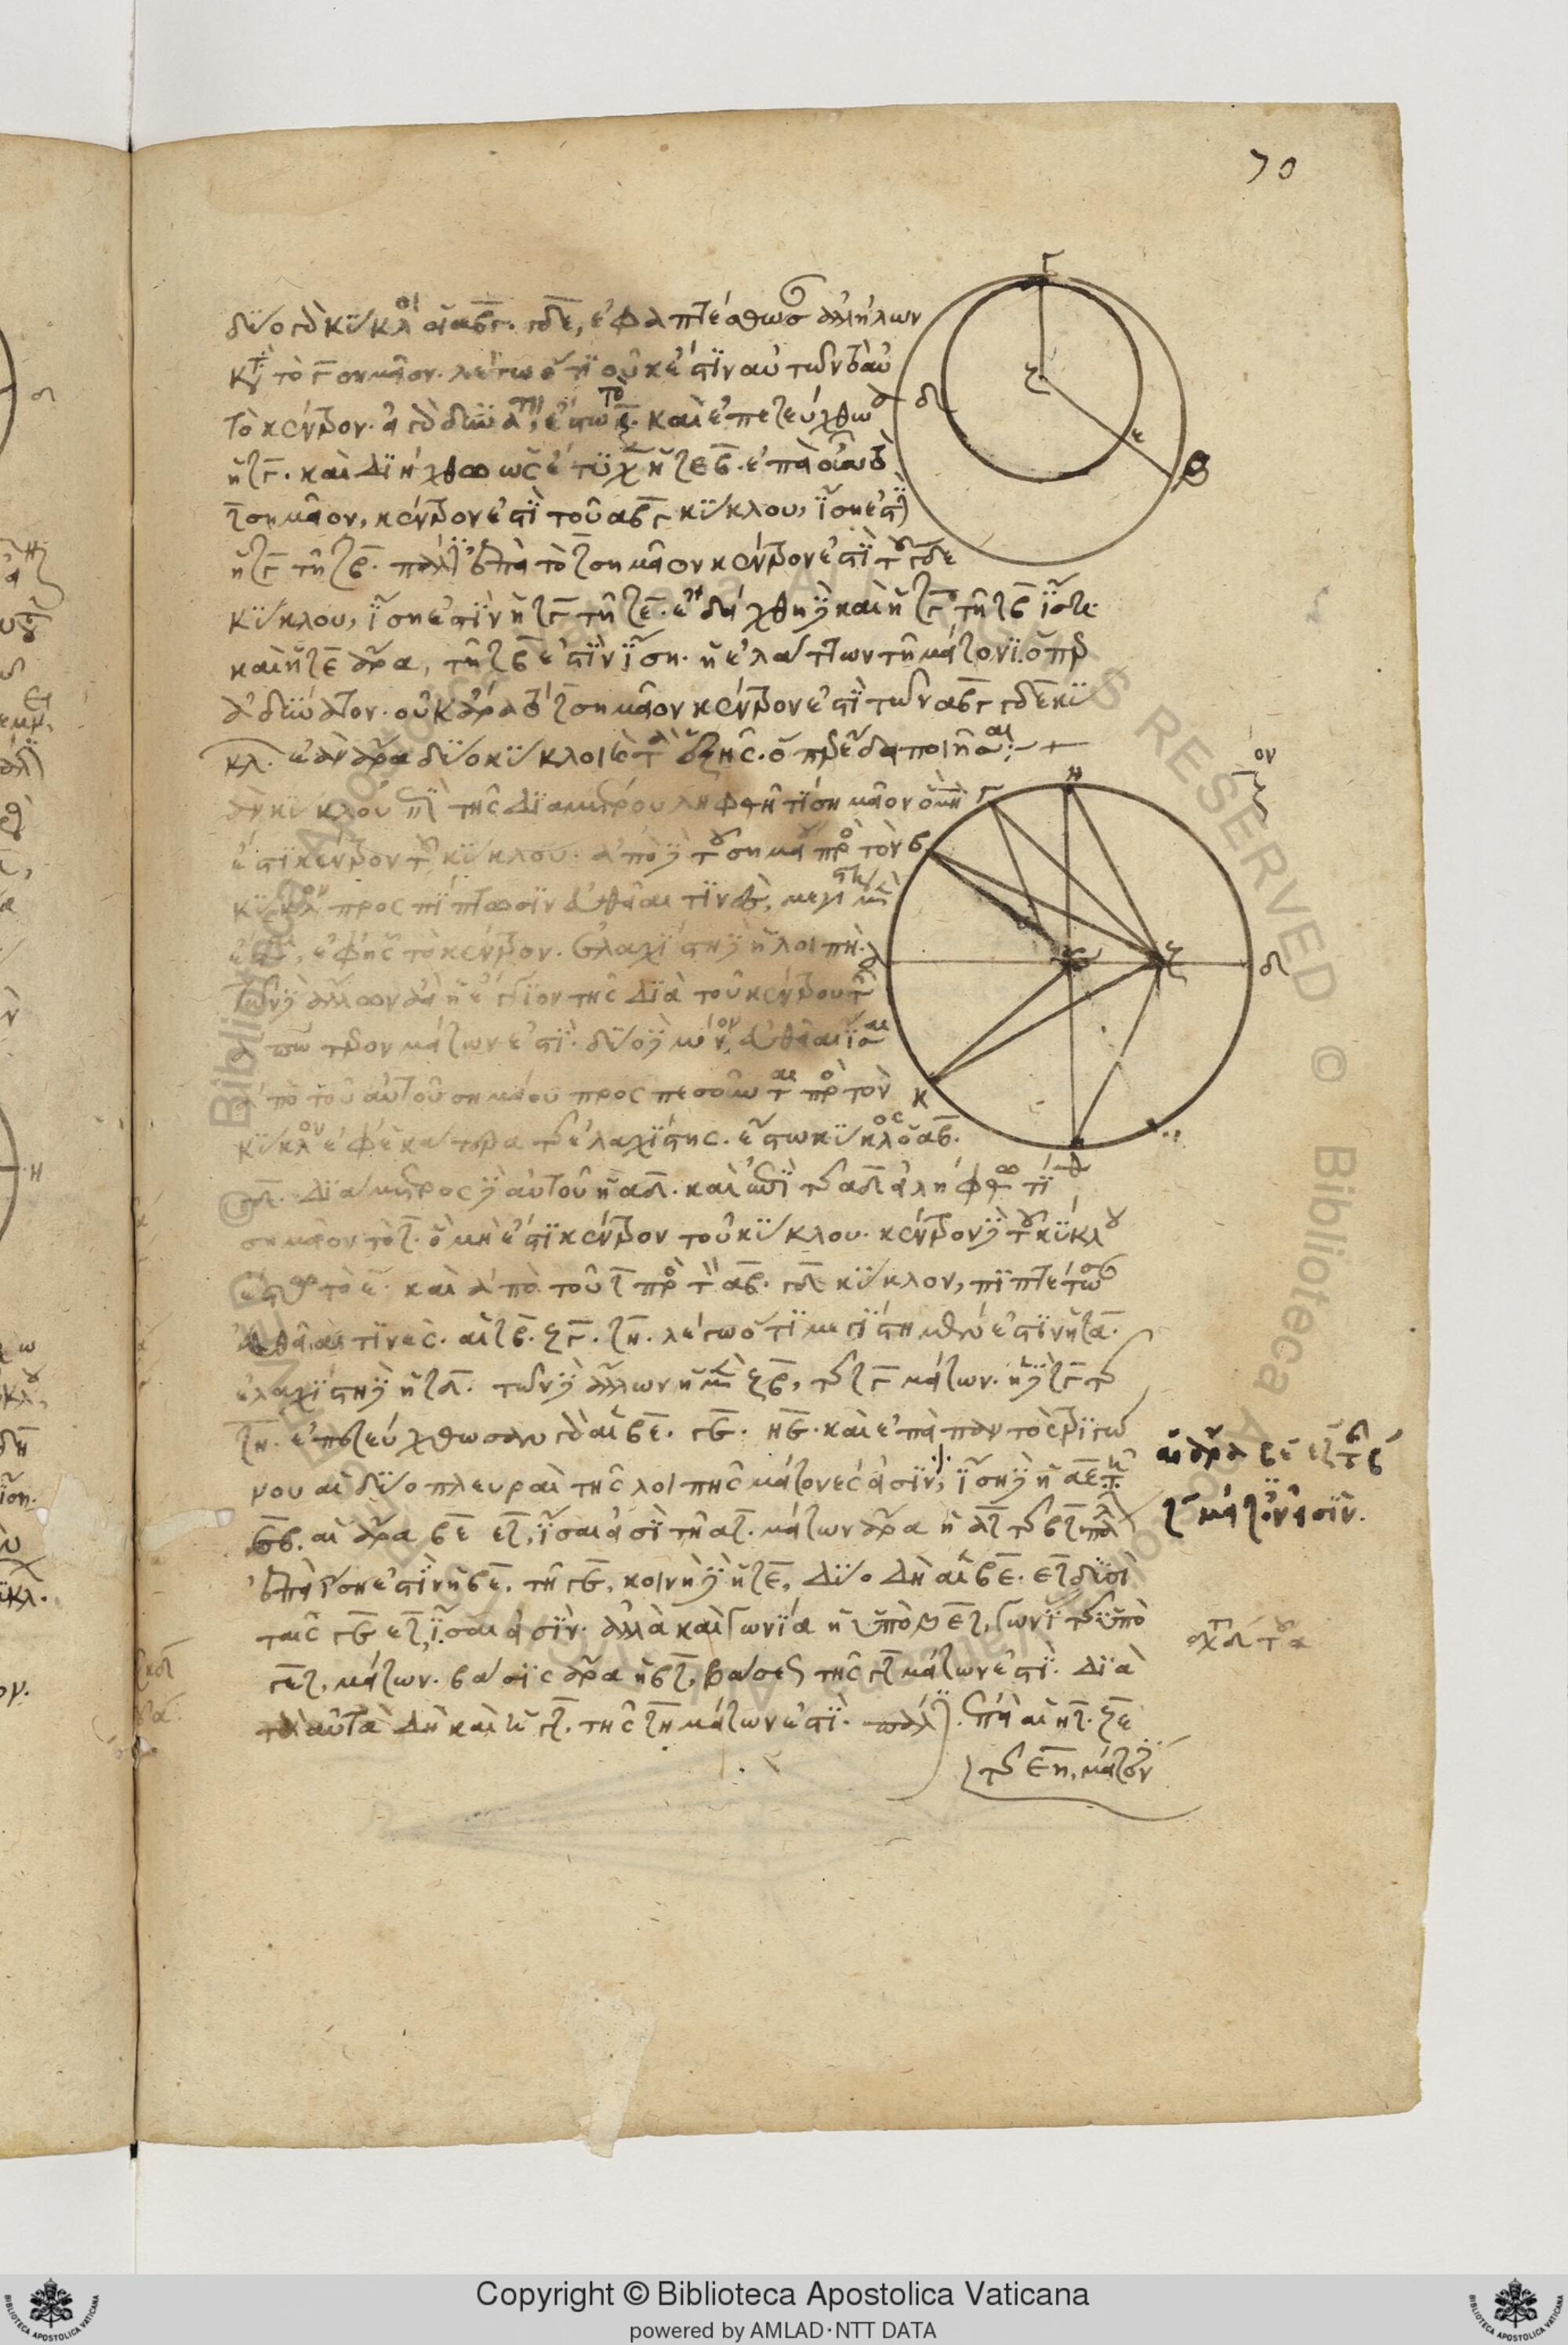 70
δύο γὰρ κύκλοι οἱ αβγ. γδε, ἐφαπτέσθωσαν ἀλλήλων
κατὰ τὸ γ σημεῖον. λέγω ὅτι οὐκ ἔστιν αὐτῶν τὸ αὐ
τὸ κέντρον. εἰ γὰρ δυνατὸν, ἔστω τὸ ζ. καὶ ἐπεζεύχθω
ἡ ζγ. καὶ διήχθω ὡς ἔτυχεν ἡ ζεβ. ἐπεὶ οὖν τὸ
ζ σημεῖον, κέντρον ἐστὶ τοῦ αβγ κύκλου, ἴση ἐστὶν
ἡ ζγ τῇ ζβ. πάλιν ἐπεὶ τὸ ζ σημεῖον κέντρον ἐστὶ τοῦ γδε
κύκλου, ἴση ἐστὶν ἡ ζγ τῇ ζε. ἐδείχθη δὲ καὶ ἡ ζγ τῇ ζβ ἴση.
καὶ ἡ ζε ἄρα, τῇ ζβ ἐστὶν ἴση. ἡ ἐλάττων τῇ μείζονι. ὅπερ
ἀδύνατον. οὐκ ἄρα τὸ ζ σημεῖον κέντρον ἐστὶ τῶν αβγ γδε κύ
κλ. ἐὰν ἄρα δύο κύκλοι καὶ τὰ ἑξῆς. ὅπερ ἔδει ποιῆσαι
ἐὰν κύκλου ἐπὶ τῆς διαμέτρου ληφθῇ τι σημεῖον ὃ μή
ἐστι κέντρον τοῦ κύκλου. ἀπὸ δὲ τοῦ σημείου πρὸς τὸν
κύκλον προσπίπτωσιν εὐθεῖαι τινὲς, μεγίστη μὲν
ἔσται, ἐφ' ἧς τὸ κέντρον. ἐλαχίστη δὲ ἡ λοιπή.
τῶν δὲ ἄλλων ἀεὶ ἡ ἔγγιον τῆς διὰ τοῦ κέντρου τῆς
ἀπώτερον μείζων ἐστί. δύο δὲ μόνον εὐθεῖαι ἴσαι
ἀπὸ τοῦ αὐτοῦ σημείου προσπεσοῦνται πρὸς τὸν
κύκλον ἐφ' ἑκάτερα τῆς ἐλαχίστης. ἔστω κύκλος ὁ αβ.
γδ. διάμετρος δὲ αὐτοῦ ἡ αδ. καὶ ἐπὶ τῆς αδ εἰλήφθω τι
σημεῖον τὸ ζ. ὃ μή ἐστι κέντρον τοῦ κύκλου. κέντρον δὲ τοῦ κύκλου
ἔστω τὸ ε. καὶ ἀπὸ τοῦ ζ πρὸς τὸν αβ. γδ κύκλον, πιπτέτωσαν
εὐθεῖαι τινές. αἱ ζβ. ζγ. ζη. λέγω ὅτι μεγίστη μέν ἐστιν ἡ ζα.
ἐλαχίστη δὲ ἡ ζδ. τῶν δὲ ἄλλων ἡ μὲν ζβ, τῆς ζγ μείζων. ἡ δὲ ζγ τῆς
ζη. ἐπεζεύχθωσαν γὰρ αἱ βε. γε. ηε. καὶ ἐπεὶ παντὸς τριγώ
νου αἱ δύο πλευραὶ τῆς λοιπῆς μείζονές εἰσιν, ἴση δὲ ἡ αε τῇ
εβ. αἱ ἄρα βε εζ, ἴσαι εἰσὶ τῇ αζ. μείζων ἄρα ἡ αζ τῆς βζ πάλιν
ἐπεὶ ἴση ἐστὶν ἡ βε. τῇ γε, κοινὴ δὲ ἡ ζε, δύο δὴ αἱ βε. εζ δυσὶ
ταῖς γε εζ ἴσαι εἰσίν. ἀλλὰ καὶ γωνία ἡ ὑπὸ βεζ, γωνίας τῆς ὑπὸ
γεζ, μείζων. βάσις ἄρα ἡ βζ, βάσεως τῆς γζ μείζων ἐστί. διὰ
τὰ αὐτὰ δὴ καὶ ἡ γζ. τῆς ζη μείζων ἐστί. πάλιν. ἐπεὶ αἱ ηζ. ζε
τῆς εη, μείζον
αἱ ἄρα βε εζ τῆς β
ζ μείζονές εἰσιν.
Γ
ζ
α
δ
ε
β
η
γ
β
α
ε
ζ
δ
κ
θ